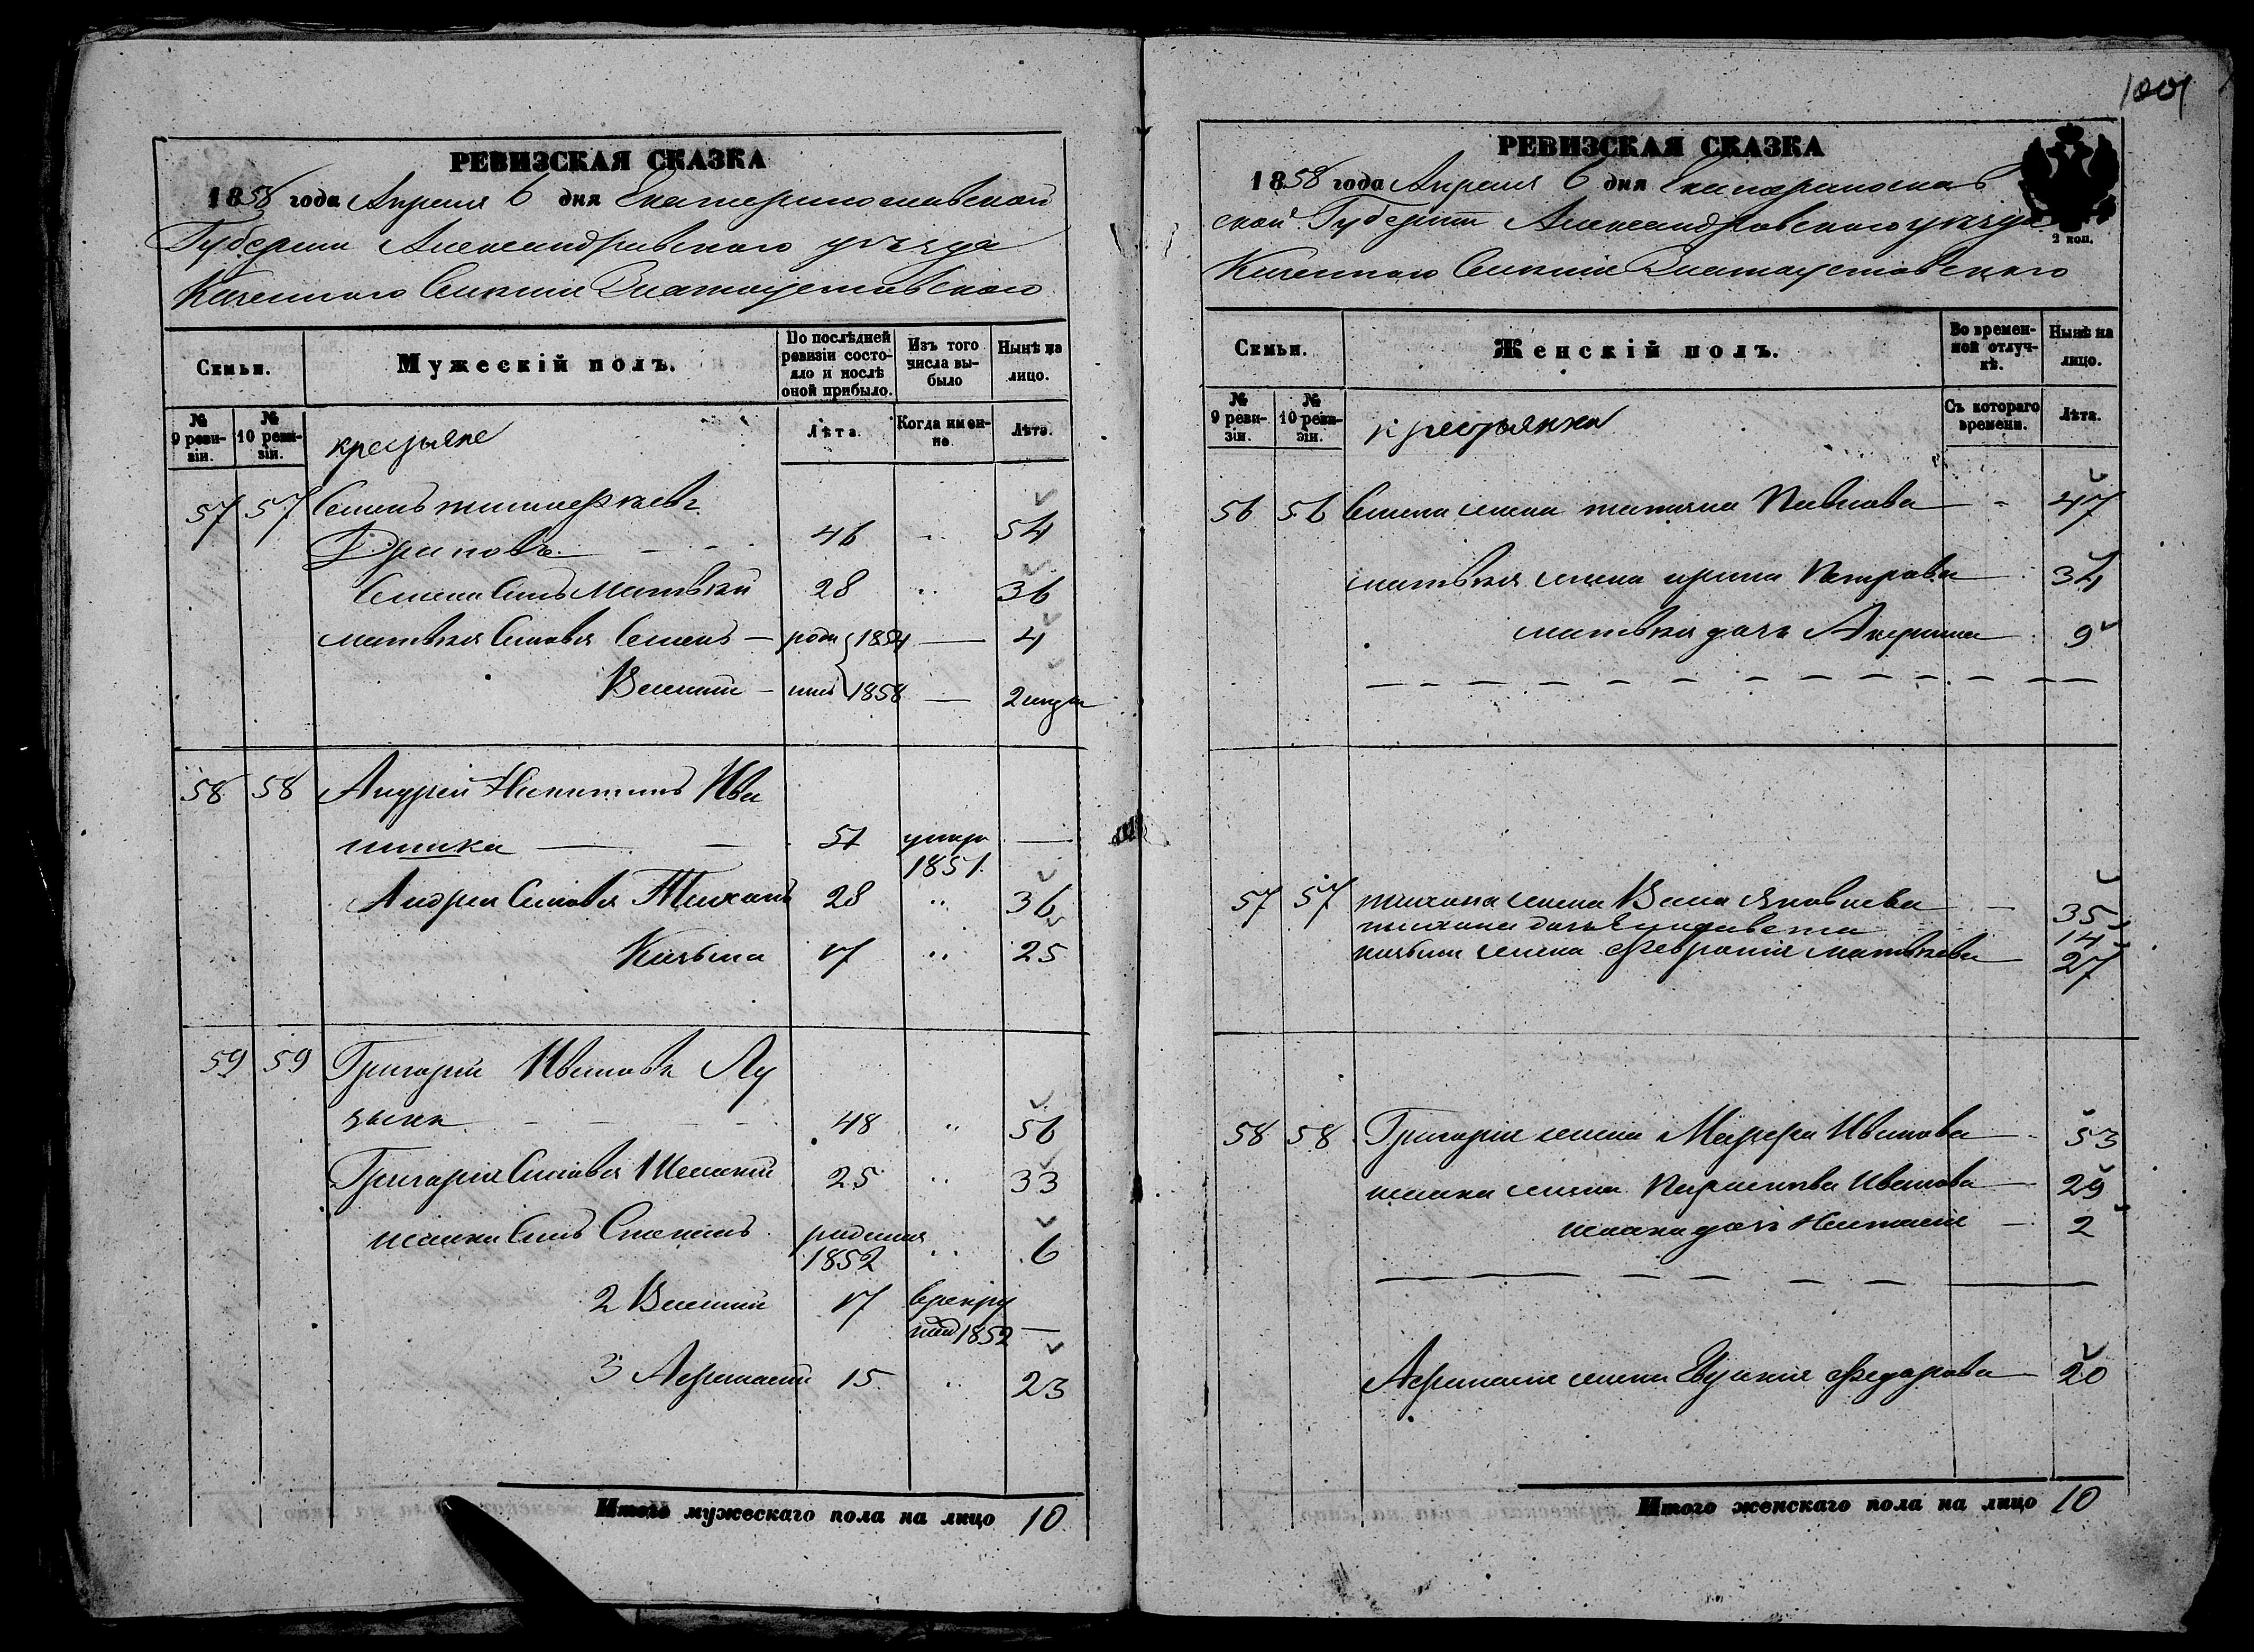 1001
РЕВИЗСКАЯ СКАЗКА
1858 года Апреля 6 дня Екатеринославской
Губернии Александровского уѣзда
Казенного Селения Златоустовского
Семьи.
Мужескій полъ.
По послѣдней ревизіи состояло и послѣ оной прибыло.
Изъ того числа выбыло
Нынѣ на лицо.
№ 9 ревизіи.
№ 10 ревизіи.
крестьяне
Лѣта.
Когда именно.
Лѣта.
57 57 Семенъ
46 54
Семена Сынъ Матвѣй 28 36
Матвѣя Сыновья Семенъ — роди 1854 — 4
Василий — лись 1858 — 2 недели
58 58 Андрей Никитинъ Ива
шика — 51 умер 1851 —
Андрея Сыновья Тихонъ 28 36
Козьма 17 25
59 59 Григорий Ивановъ Лу
48 56
Григория Сыновья Исакий 25 33
Исакия Сынъ Степанъ родился 1852 6
2 Василий 17 в рекру
1852 —
3 Афанасий 15 23
Итого мужескаго пола на лицо 10
РЕВИЗСКАЯ СКАЗКА
2 коп.
1858 года Апреля 6 дня Екатеринослав
ской Губернии Александровского уѣзда
Казенного Селения Златоустовского
Семьи.
Женскій полъ.
Во временной отлучкѣ.
Нынѣ на лицо.
№ 9 ревизіи.
№ 10 ревизіи.
крестьянки
Съ котораго времени.
Лѣта.
56 56 Семена жена татьяна Павлова — 47
матвѣя жена ирина Петрова — 34
матвѣя дочь Акулина 9
57 57 тихона жена Васа Яковлева — 35
тихона дочь Елизавета 14
козьмы жена Феврония матвѣева 27
58 58 Григория жена Марфа Иванова — 53
исакия жена Парасковья Иванова — 29
исакия дочь Наталия — 2
Афанасия жена Евдокия Федорова — 20
Итого женскаго пола на лицо 10